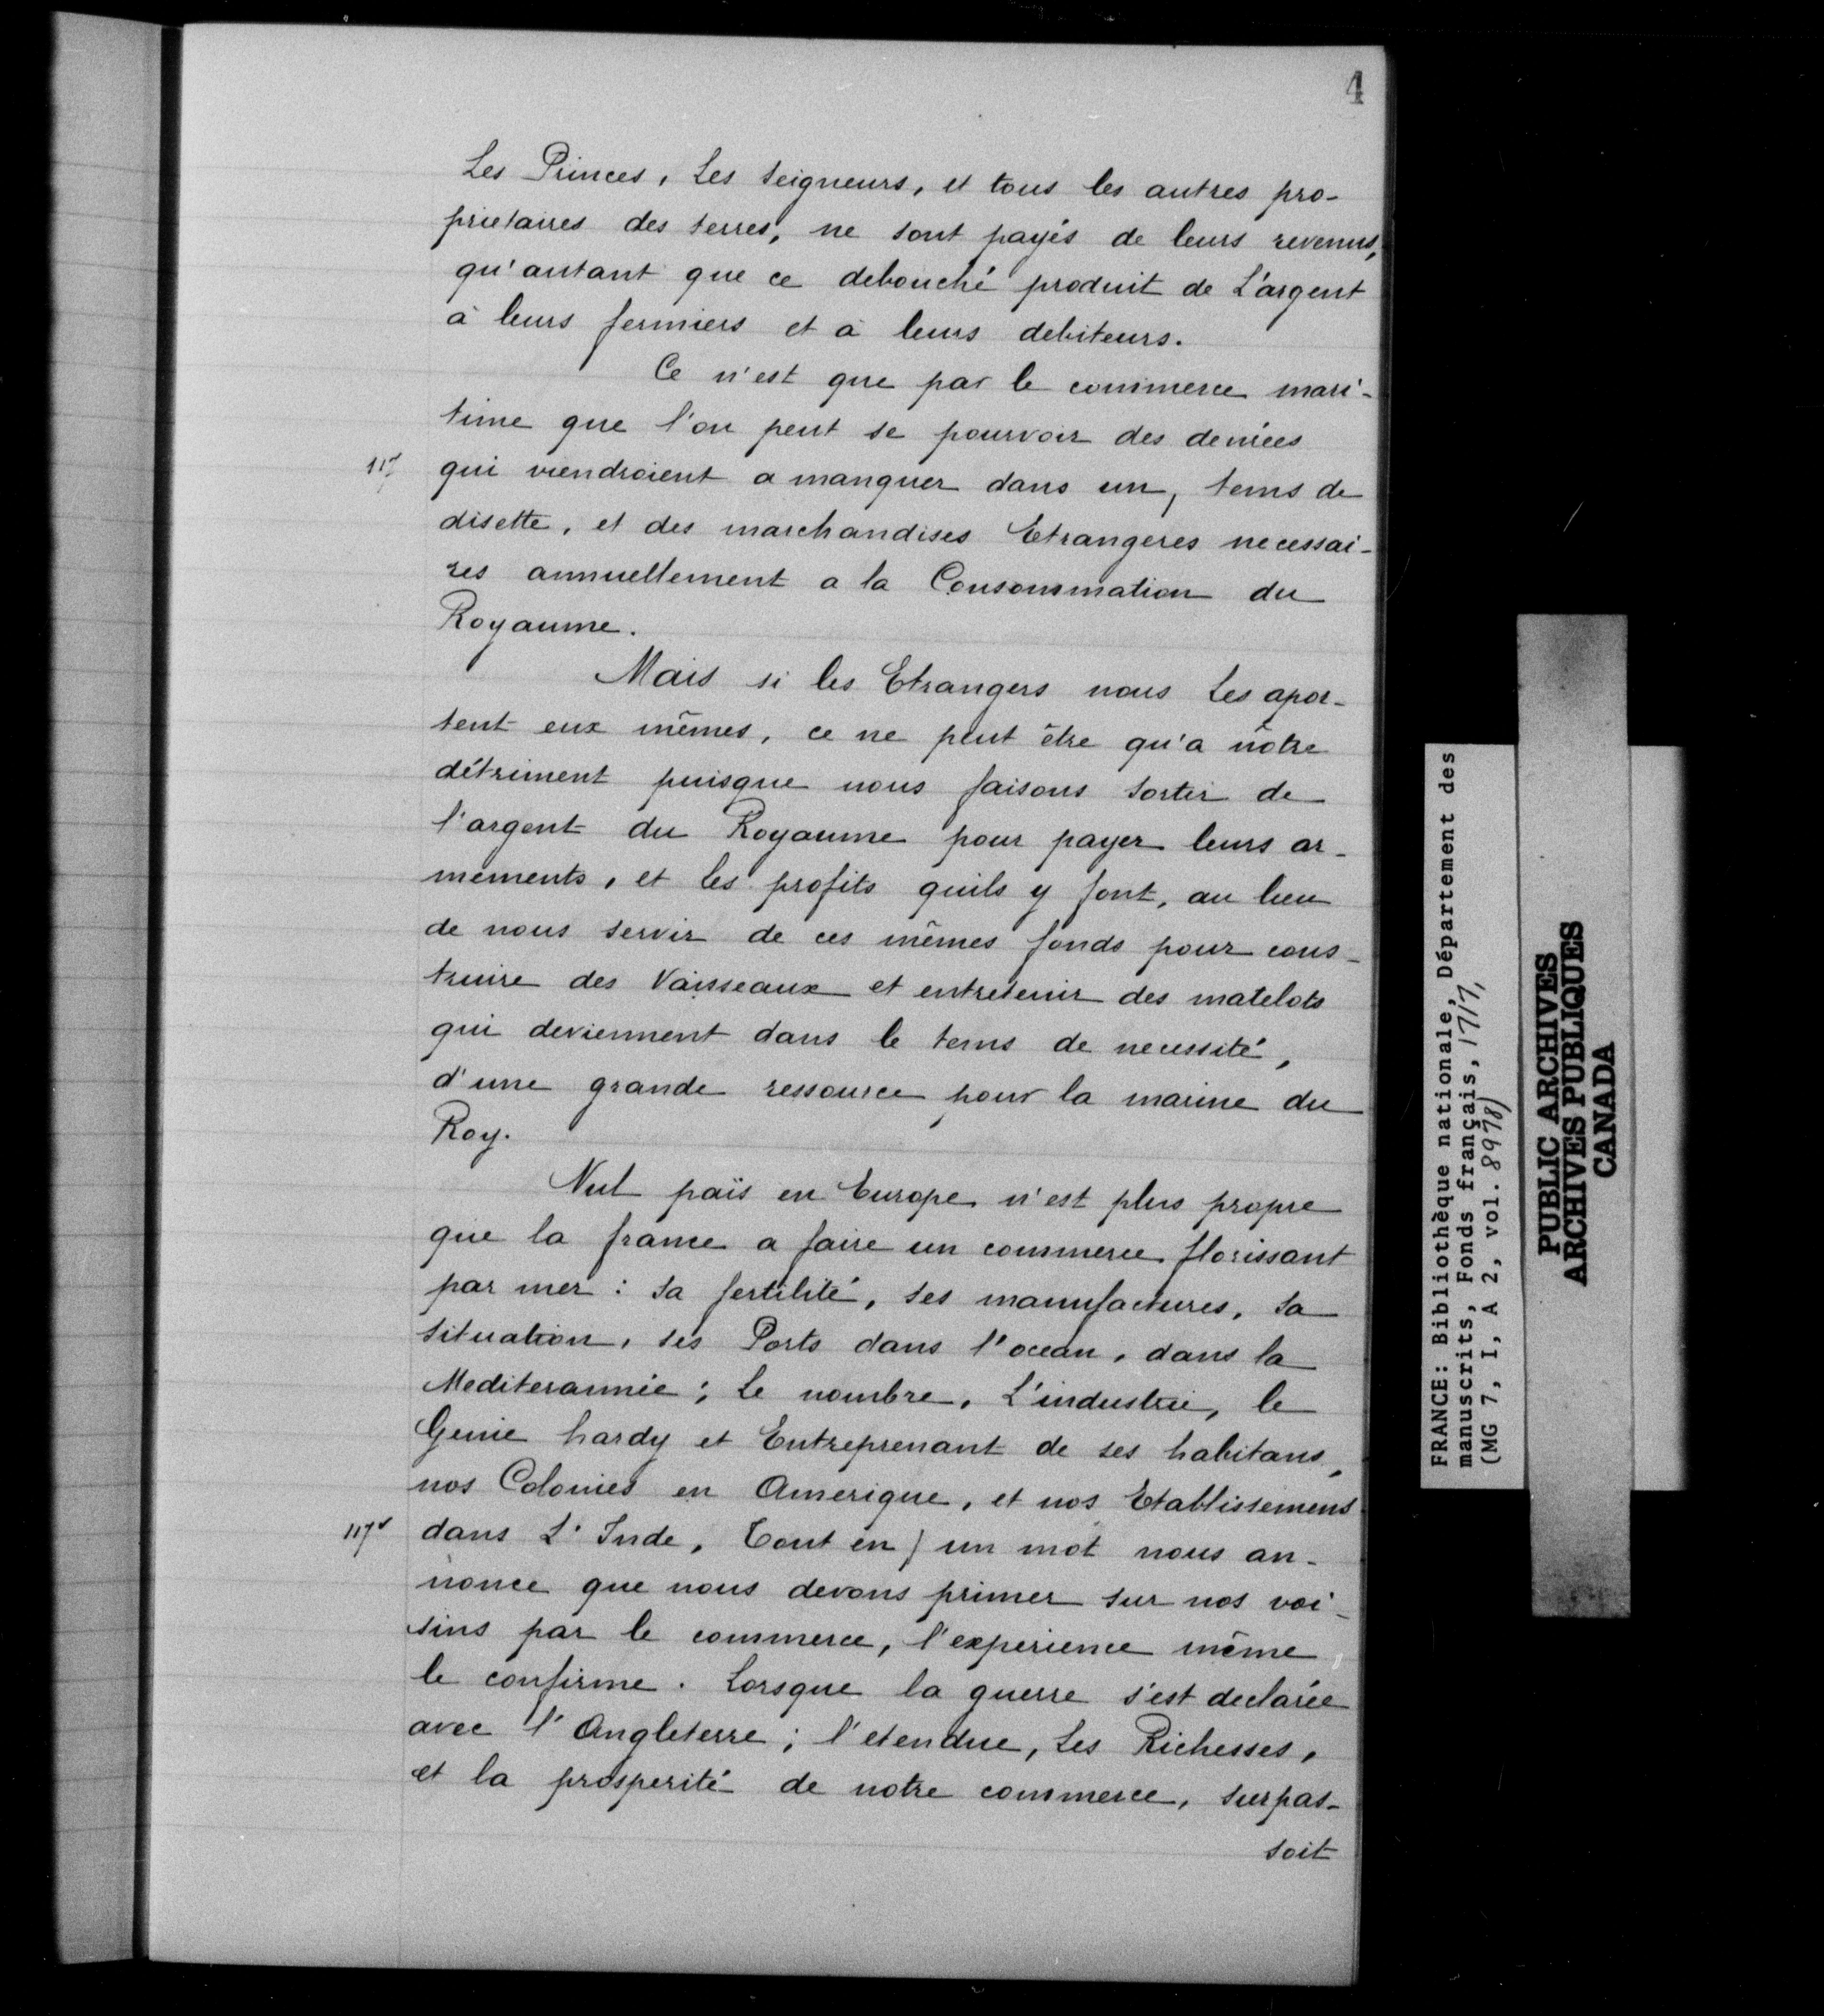 4
Les Princes, Les seigneurs, et tous les autres pro-
prietaires des terres, ne sont payés de leurs revenus,
qu'autant que ce debouché produit de L'argent
à leurs fermiers et à leurs debiteurs.
Ce n'est que par le commerce mari-
time que l'on peut se pourvoir des denrées
qui viendroient a manquer dans un, tems de
disette, et des marchandises Etrangeres necessai-
res annuellement a la Consommation du
Royaume.
Mais si les Etrangers nous Les apor-
tent eux mêmes, ce ne peut être qu'a nôtre
détriment puisque nous faisons sortir de
l'argent du Royaume pour payer leurs ar-
mements, et les profits quils y font, au lieu
de nous servir de ces mêmes fonds pour cons-
truire des Vaisseaux et entretenir des matelots
qui deviennent dans le tems de necessité,
d'une grande ressource pour la marine du
Roy.
Nul païs en Europe n'est plus propre
que la france a faire un commerce florissant
par mer : sa fertilité, ses manufactures, sa
situation, ses Ports dans l'ocean, dans la
Mediterannée ; Le nombre, L'industrie, le
Genie hardy et Entreprenant de ses habitans,
nos Colonies en Amerique, et nos Etablissemens
117v dans L'Inde, Tout en / un mot nous an-
nonce que nous devons primer sur nos voi-
sins par le commerce, l'experience même
le confirme. Lorsque la guerre s'est declarée
avec l'Angleterre ; l'etendue, Les Richesses,
et la prosperité de notre commerce, surpas-
soit
FRANCE: Bibliothèque nationale, Département des
manuscrits, Fonds français, 1717,
(MG 7, I, A 2, vol. 8978)
PUBLIC ARCHIVES
ARCHIVES PUBLIQUES
CANADA